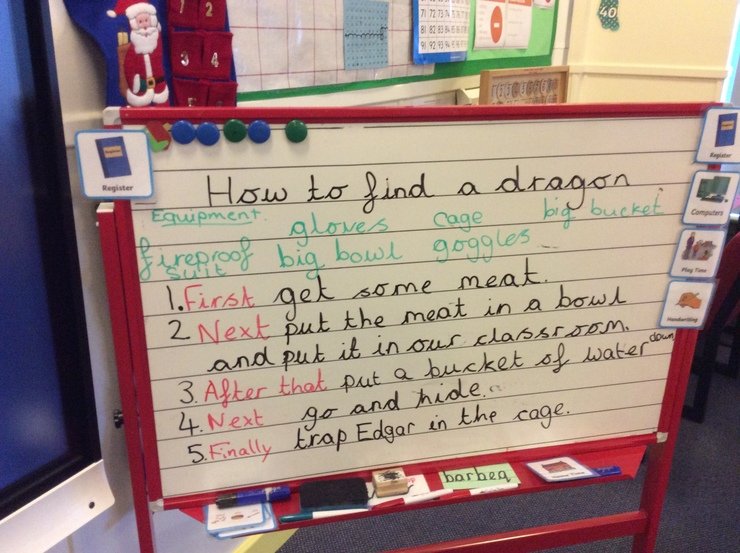 1 2
3 4
71 72 73 74
81 82 83 84
91 92 93 94
40
Register
Register
Computers
Play Time
Handwriting
How to find a dragon
Equipment gloves cage big bucket
fireproof suit big bowl goggles
1. First get some meat.
2 Next put the meat in a bowl
and put it in our classroom.
3. After that put a bucket of water down
4. Next go and hide.
5. Finally trap Edgar in the cage.
barbeq